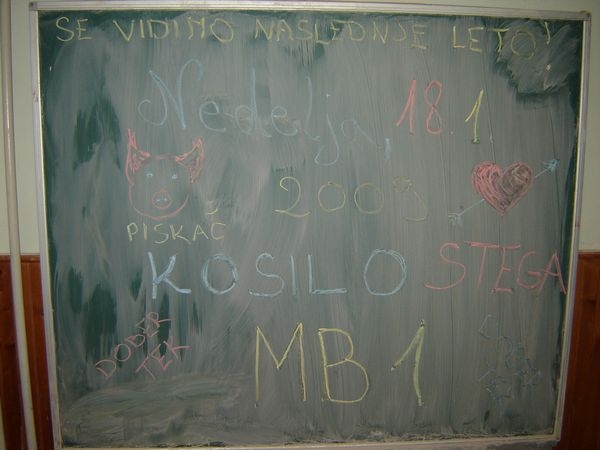 SE VIDIMO NASLEDNJE LETO!
Nedelja, 18.1
2009
PISKAČ
KOSILO STEGA
DOBER
TEK
MB1